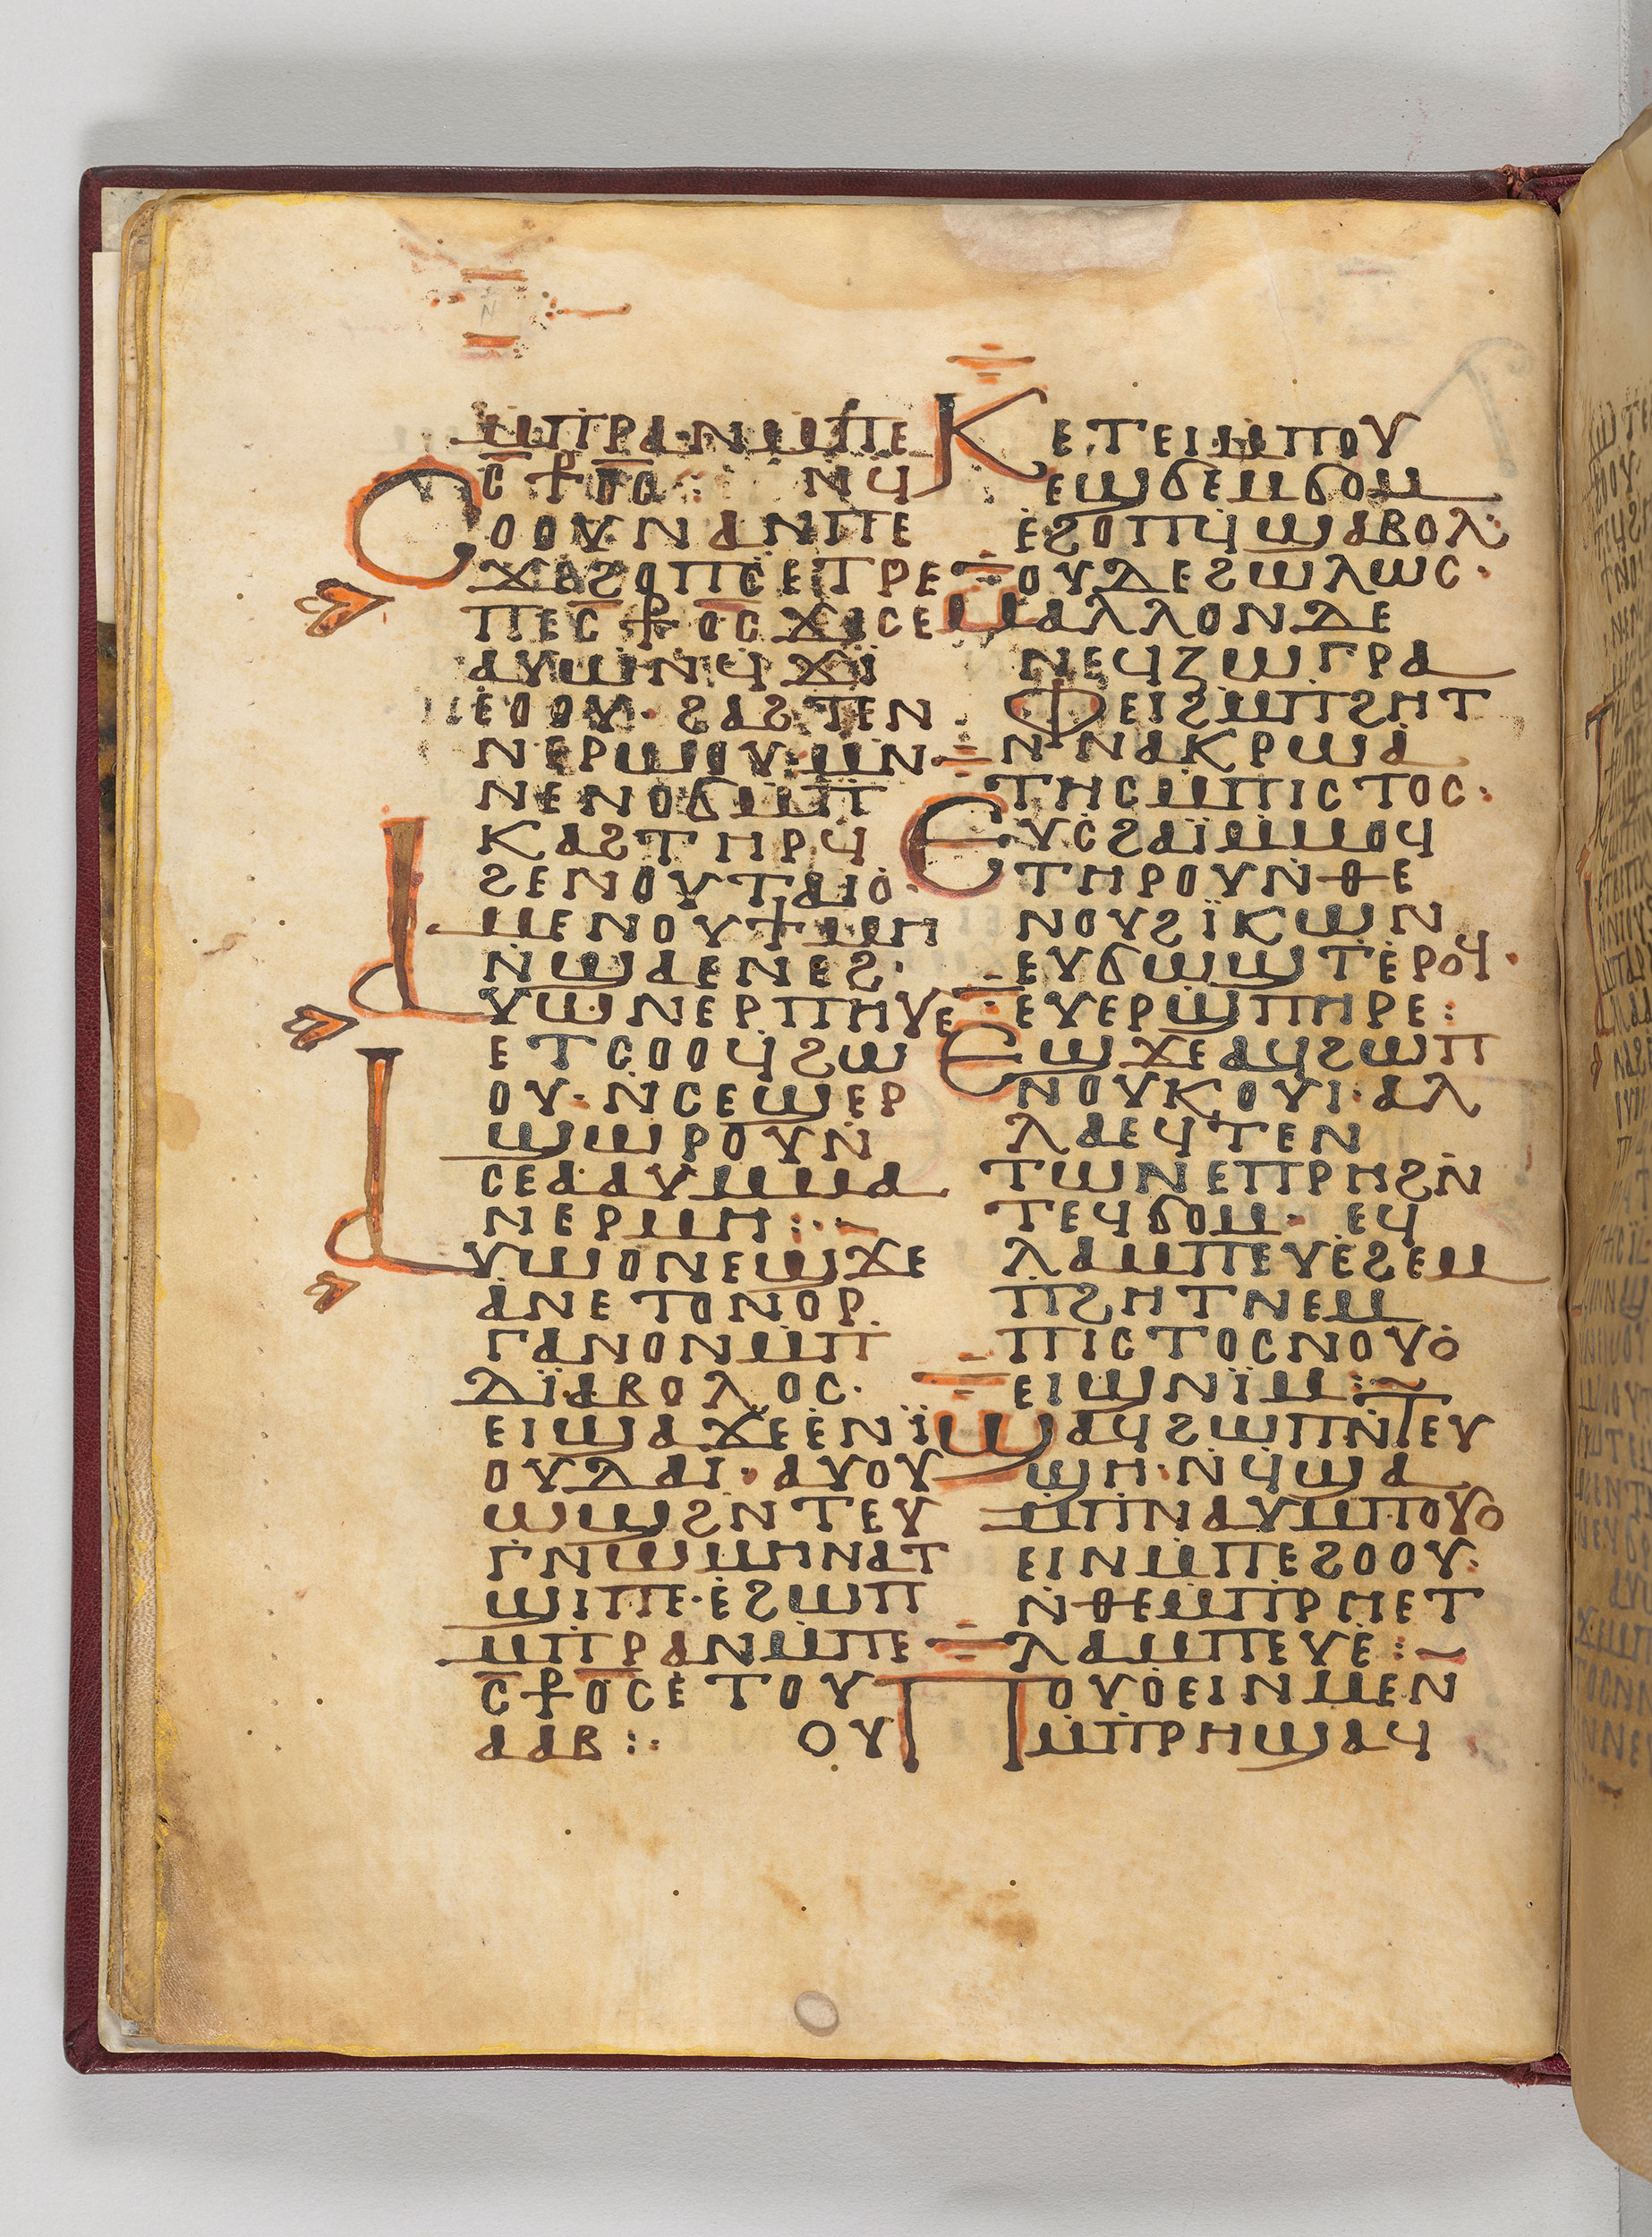 ⲙ̇ⲡⲣⲁⲛⲙ̇ⲡⲉ
ⲥ̅⳨ⲟ̅ⲥ: ⲛϥ
ⲥⲟⲟⲩⲛⲁⲛⲡⲉ
ϫⲉϩⲟⲡⲥⲉⲧⲣⲉ
ⲡⲉⲥ̅⳨ⲟ̅ⲥϫⲓⲥⲉ
ⲁⲩⲱⲛ̇ϥϫⲓ̈
ⲉⲟⲟⲩ· ϩⲁϩⲧⲉⲛ
ⲛⲉⲣⲱⲟⲩ·ⲙⲛ
ⲛⲉⲛⲟϭⲙ̇ⲡ
ⲕⲁϩⲧⲏⲣϥ
ϩⲉⲛⲟⲩⲧⲁⲓⲟ·
ⲙⲉⲛⲟⲩϯⲙⲏ
ⲛ̇ϣⲁⲉⲛⲉϩ·
ⲁⲩⲱⲛⲉⲣⲡⲏⲩⲉ
ⲉⲧⲥⲟⲟϥϩⲱ
ⲟⲩ·ⲛ̇ⲥⲉϣⲉⲣ
ϣⲱⲣⲟⲩⲛ̇
ⲥⲉⲁⲁⲩⲙⲙⲁ
ⲛⲉⲣⲙⲏ:·-
ⲁⲩⲱⲟⲛⲉϣϫⲉ
ⲁⲛⲉⲧⲟⲛⲟⲣ
ⲅⲁⲛⲟⲛⲙ̇ⲡ
ⲇⲓ̈ⲁⲃⲟⲗⲟⲥ·
ⲉⲓϣⲁϫⲉⲉ̇ⲛⲓ̈
ⲟⲩⲇⲁⲓ·ⲁⲩⲟⲩ
ⲱϣϩⲛ̇ⲧⲉⲩ
ⲅⲛⲱⲙⲏⲛⲁⲧ
ϣⲓⲡⲉ·ⲉ̇ϩⲱⲡ
ⲙ̇ⲡⲣⲁⲛⲙ̇ⲡⲉ
ⲥ̅⳨ⲟ̅ⲥⲉⲧⲟⲩ
ⲁⲁⲃ:· ⲟⲩ
ⲕⲉⲧⲉⲓⲙ̇ⲡⲟⲩ
ⲉϣϭⲉⲙϭⲟⲙ
ⲉ̇ϩⲟⲡϥϣⲁⲃⲟⲗ:
ⲟⲩⲇⲉϩⲱⲗⲱⲥ·
ⲙⲁⲗⲗⲟⲛⲇⲉ
ⲛⲉϥⲍⲱⲅⲣⲁ
ⲫⲉⲓϩⲙ̇ⲡϩⲏⲧ
ⲛ̇ⲛⲁⲕⲣⲱⲁ
ⲧⲏⲥⲙ̇ⲡⲓⲥⲧⲟⲥ·
ⲉⲩⲥϩⲁⲓ̈ⲙ̇ⲙⲟϥ
ⲧⲏⲣⲟⲩⲛ̇ⲑⲉ
ⲛⲟⲩϩⲓ̈ⲕⲱⲛ
ⲉⲩϭⲱϣⲧⲉⲣⲟϥ·
ⲉⲩⲉⲣϣⲡⲏⲣⲉ:
ⲉϣϫⲉⲁϥϩⲱⲡ
ⲛⲟⲩⲕⲟⲩⲓ·ⲁⲗ
ⲗⲁⲉϥⲧⲉⲛ
ⲧⲱⲛⲉⲡⲣⲏϩⲛ̇
ⲧⲉϥϭⲟⲙ· ⲉϥ
ⲗⲁⲙⲡⲉⲩⲉϩⲉⲙ
ⲡϩⲏⲧⲛⲉⲙ
ⲡⲓⲥⲧⲟⲥⲛⲟⲩⲟ
ⲉⲓϣⲛⲓ̈ⲙ:~
ϣⲁϥϩⲱⲡⲛ̇ⲧⲉⲩ
ϣⲏ·ⲛ̇ϥϣⲁ
ⲙ̇ⲡⲛⲁⲩⲙ̇ⲡⲟⲩⲟ
ⲉⲓⲛⲙ̇ⲡⲉϩⲟⲟⲩ:
ⲛ̇ⲑⲉⲙ̇ⲡⲣⲏⲉⲧ
ⲗⲁⲙⲡⲉⲩⲉ:~
ⲡⲟⲩⲟⲉⲓⲛⲙⲉⲛ
ⲙ̇ⲡⲣⲏϣⲁϥ